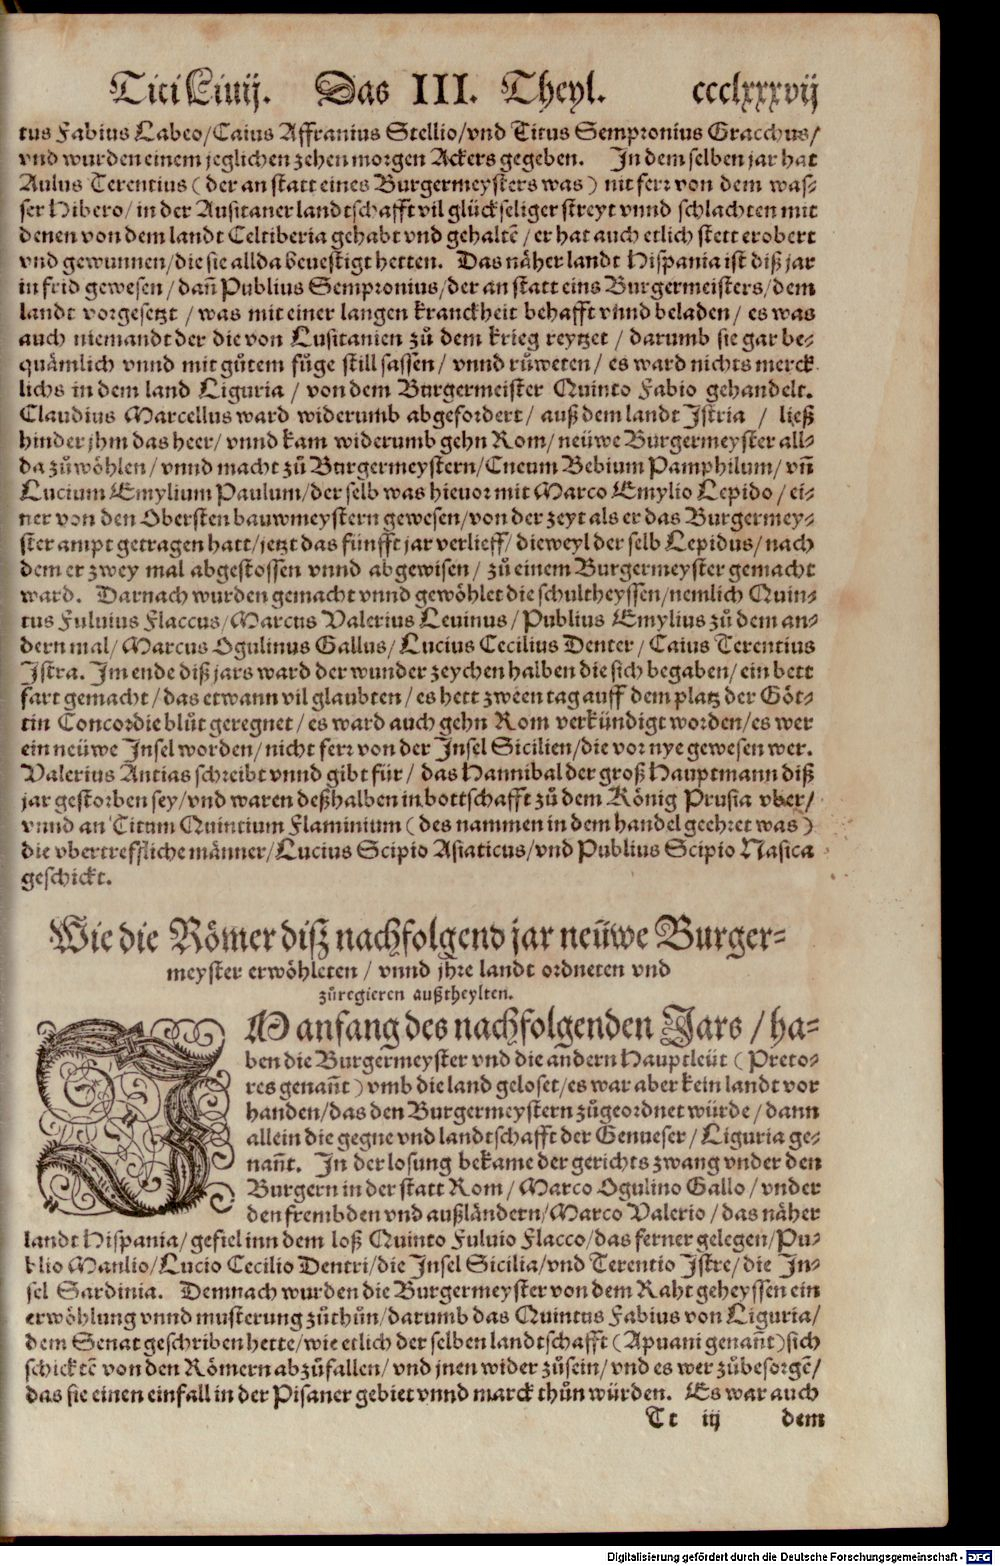 Titi Liuij. Das III. Theyl. ccclxxxvij
tus Fabius Labeo/Caius Affranius Stellio/vnd Titus Sempronius Gracchus/
vnd wurden einem jeglichen zehen morgen Ackers gegeben. In dem selben jar hat
Aulus Terentius (der an statt eines Burgermeysters was) nit ferr von dem was⸗
ser Hibero/in der Ausitaner landtschafft vil glückseliger streyt vnnd schlachten mit
denen von dem landt Celtiberia gehabt vnd gehaltẽ/er hat auch etlich stett erobert
vnd gewunnen/die sie allda beuestigt hetten. Das näher landt Hispania ist diß jar
in frid gewesen/dañ Publius Sempronius/der an statt eins Burgermeisters/dem
landt vorgesetzt/was mit einer langen kranckheit behafft vnnd beladen/es was
auch niemandt der die von Lusitanien zů dem krieg reytzet/darumb sie gar be⸗
quämlich vnnd mit gůtem fůge still sassen/vnnd růweten/es ward nichts merck⸗
lichs in dem land Liguria/von dem Burgermeister Quinto Fabio gehandelt.
Claudius Marcellus ward widerumb abgefordert/auß dem landt Istria/ließ
hinder jhm das heer/vnnd kam widerumb gehn Rom/neüwe Burgermeyster all⸗
da zůwöhlen/vnnd macht zů Burgermeystern/Cneum Bebium Pamphilum/vñ
Lucium Emylium Paulum/der selb was hieuor mit Marco Emylio Lepido/ei⸗
ner von den Obersten bauwmeystern gewesen/von der zeyt als er das Burgermey⸗
ster ampt getragen hatt/jetzt das fünfft jar verlieff/dieweyl der selb Lepidus/nach
dem er zwey mal abgestossen vnnd abgewisen/zů einem Burgermeyster gemacht
ward. Darnach wurden gemacht vnnd gewöhlet die schultheyssen/nemlich Quin⸗
tus Fuluius Flaccus/Marcus Valerius Leuinus/Publius Emylius zů dem an⸗
dern mal/Marcus Ogulinus Gallus/Lucius Cecilius Denter/Caius Terentius
Istra. Im ende diß jars ward der wunder zeychen halben die sich begaben/ein bett
fart gemacht/das etwann vil glaubten/es hett zween tag auff dem platz der Göt⸗
tin Concordie blůt geregnet/es ward auch gehn Rom verkündigt worden/es wer
ein neüwe Insel worden/nicht ferr von der Insel Sicilien/die vor nye gewesen wer.
Valerius Antias schreibt vnnd gibt für/das Hannibal der groß Hauptmann diß
jar gestorben sey/vnd waren deßhalben in bottschafft zů dem König Prusia vber/
vnnd an Titum Quintium Flaminium (des nammen in dem handel geehret was)
die vbertreffliche männer/Lucius Scipio Asiaticus/vnd Publius Scipio Nasica
geschickt.
Wie die Römer disz nachfolgend jar neüwe Burger⸗
meyster erwöhleten/vnnd jhre landt ordneten vnd
zůregieren außtheylten.
IM anfang des nachfolgenden Jars/ha⸗
ben die Burgermeyster vnd die andern Hauptleüt (Preto⸗
res genañt) vmb die land geloset/es war aber kein landt vor
handen/das den Burgermeystern zůgeordnet würde/dann
allein die gegne vnd landtschafft der Genueser/Liguria ge⸗
nañt. In der losung bekame der gerichts zwang vnder den
Burgern in der statt Rom/Marco Ogulino Gallo/vnder
den frembden vnd außländern/Marco Valerio/das näher
landt Hispania/gefiel inn dem loß Quinto Fuluio Flacco/das ferner gelegen/Pu⸗
blio Manlio/Lucio Cecilio Dentri/die Insel Sicilia/vnd Terentio Istre/die In⸗
sel Sardinia. Demnach wurden die Burgermeyster von dem Raht geheyssen ein
erwöhlung vnnd musterung zůthůn/darumb das Quintus Fabius von Liguria/
dem Senat geschriben hette/wie etlich der selben landtschafft (Apuani genañt) sich
schicktẽ von den Römern abzůfallen/vnd jnen wider zůsein/vnd es wer zůbesorgẽ/
das sie einen einfall in der Pisaner gebiet vnnd marck thůn würden. Es war auch
Tt iij dem
Digitalisierung gefördert durch die Deutsche Forschungsgemeinschaft - DFG